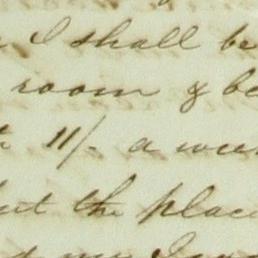 I shall be
room & be
11/- a week
but the place